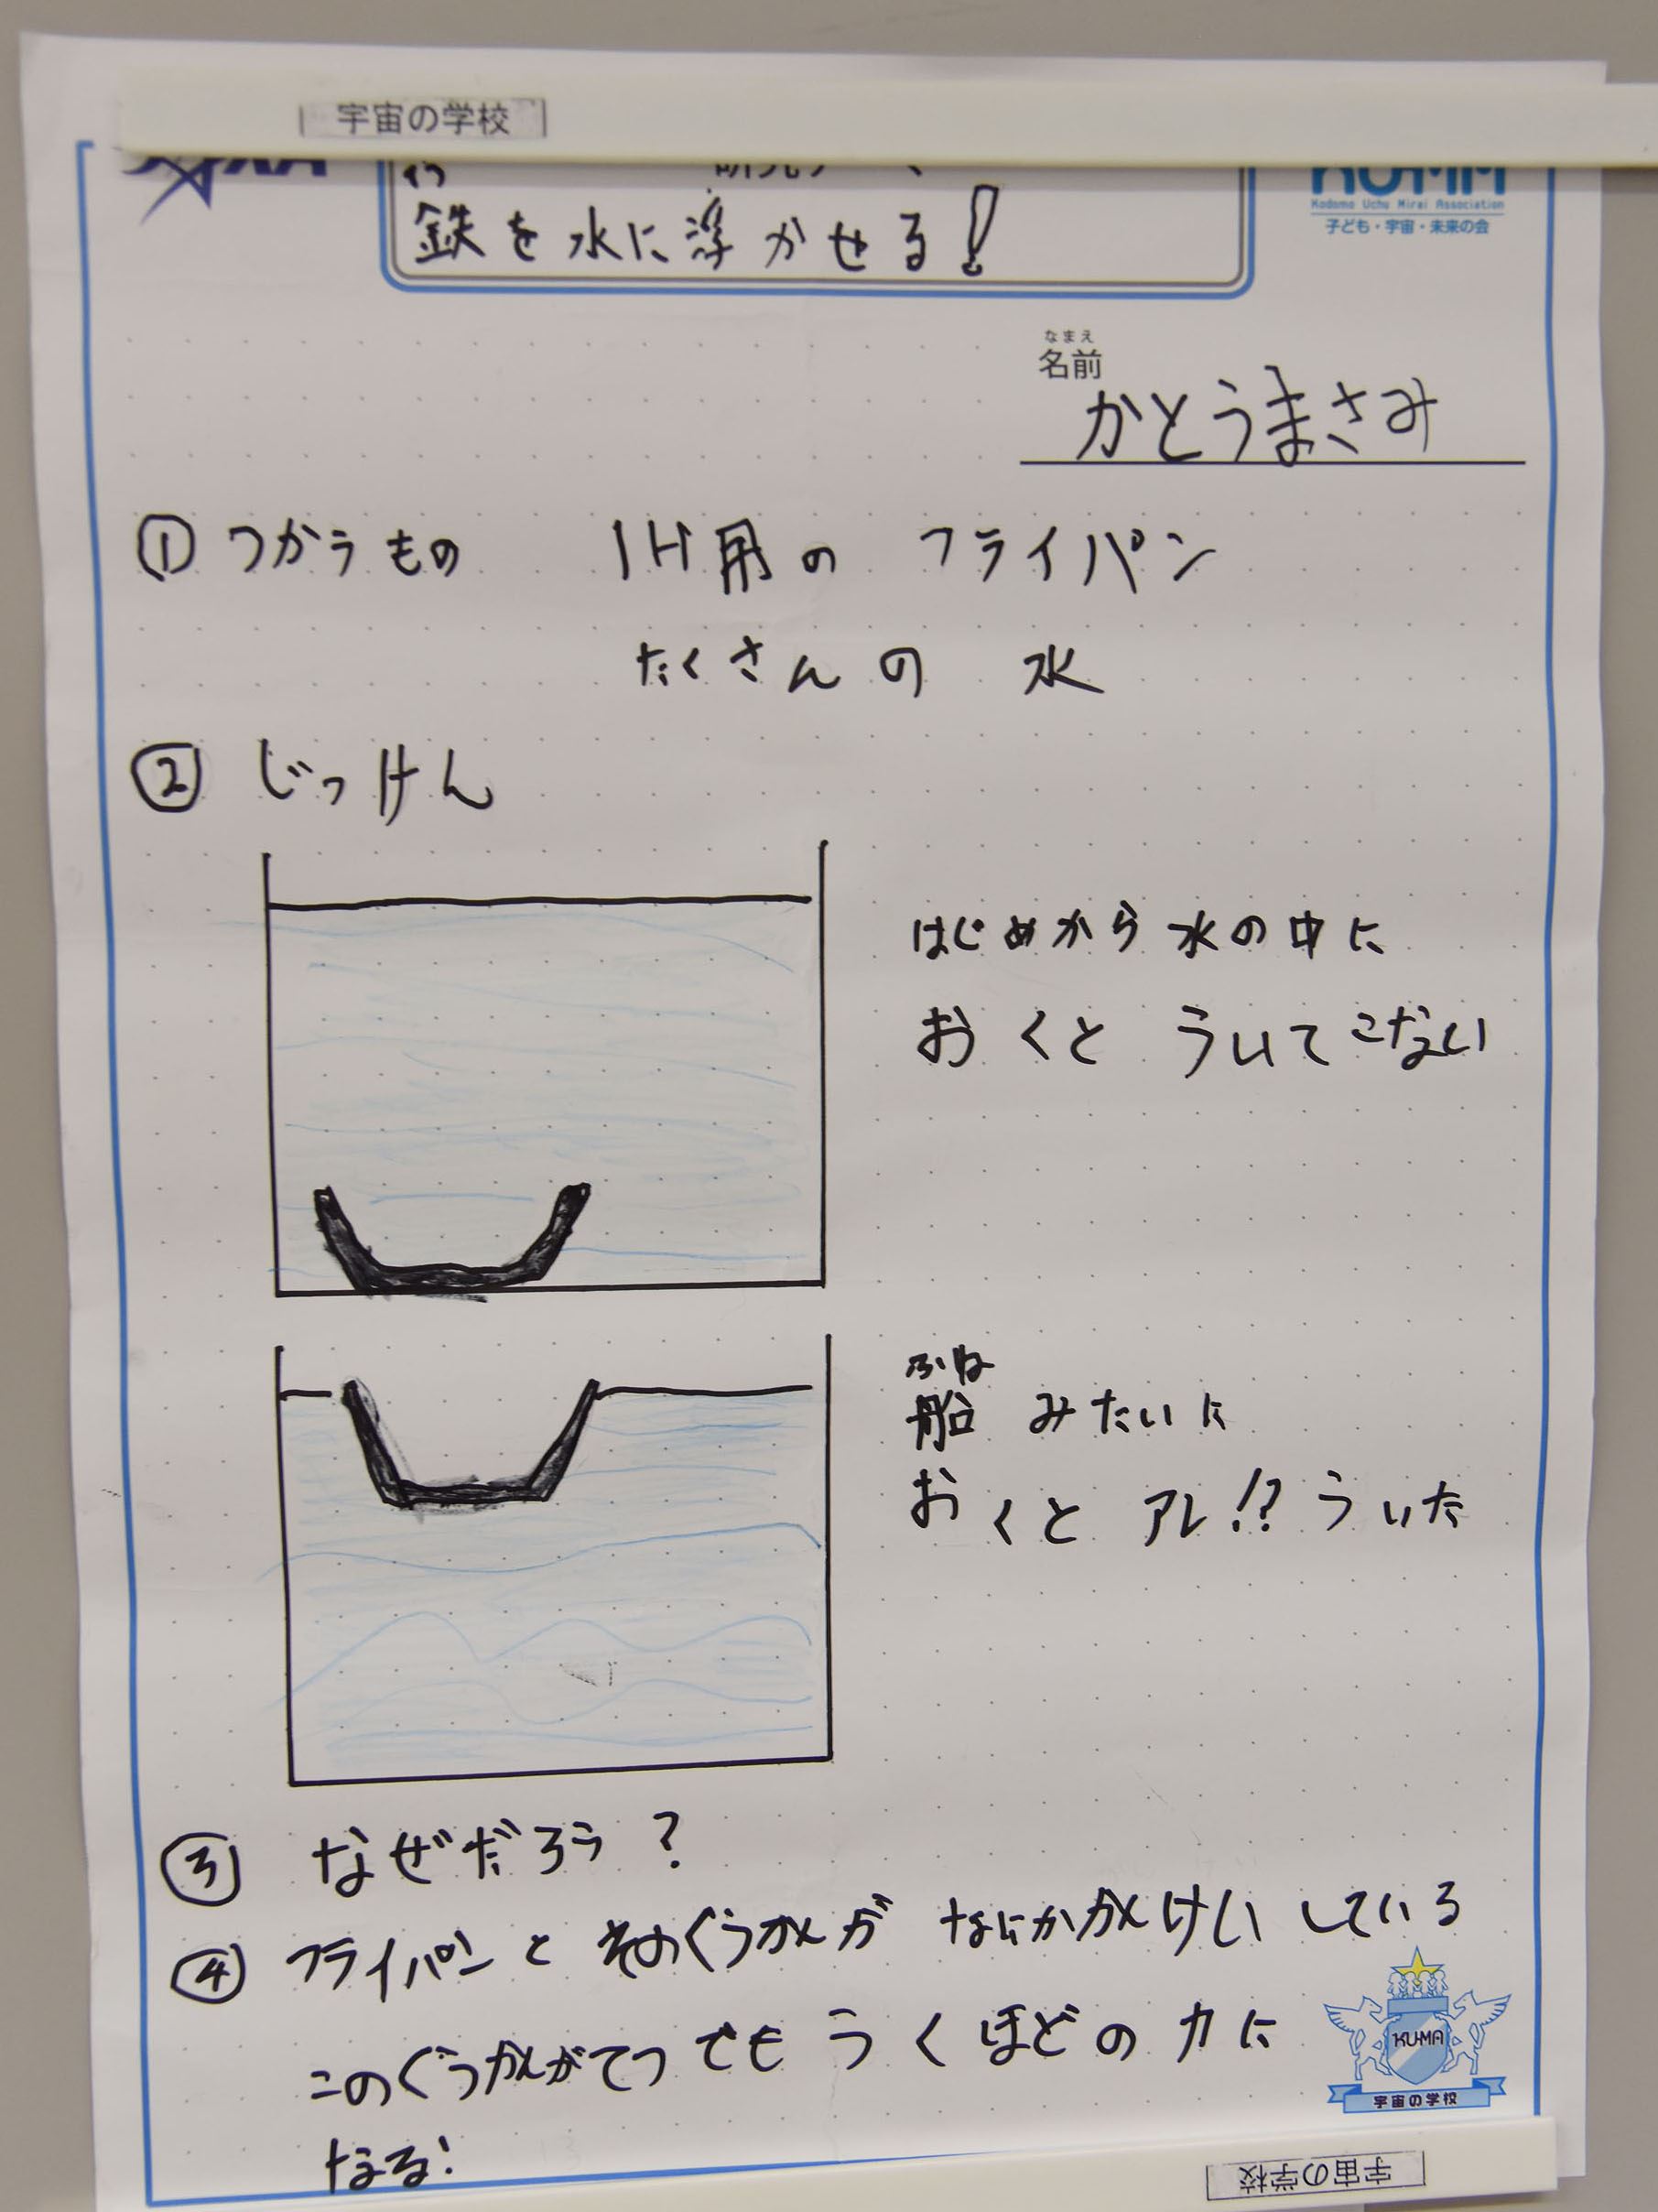 宇宙の学校
鉄を水に浮かせる!
Kodomo Uchu Mirai Association
子ども・宇宙・未来の会
なまえ
名前
かとうまさみ
① つかうもの IH用の フライパン
たくさんの 水
② じっけん
はじめから 水の中に
おくと ういてこない
ふね
船 みたいに
おくと アレ!? ういた
③ なぜだろう?
④ フライパンと そのくうかんが なにかかんけい している
このくうかんがてつ でも うくほどの 力に
なる!
KU-MA
宇宙の学校
宇宙の学校